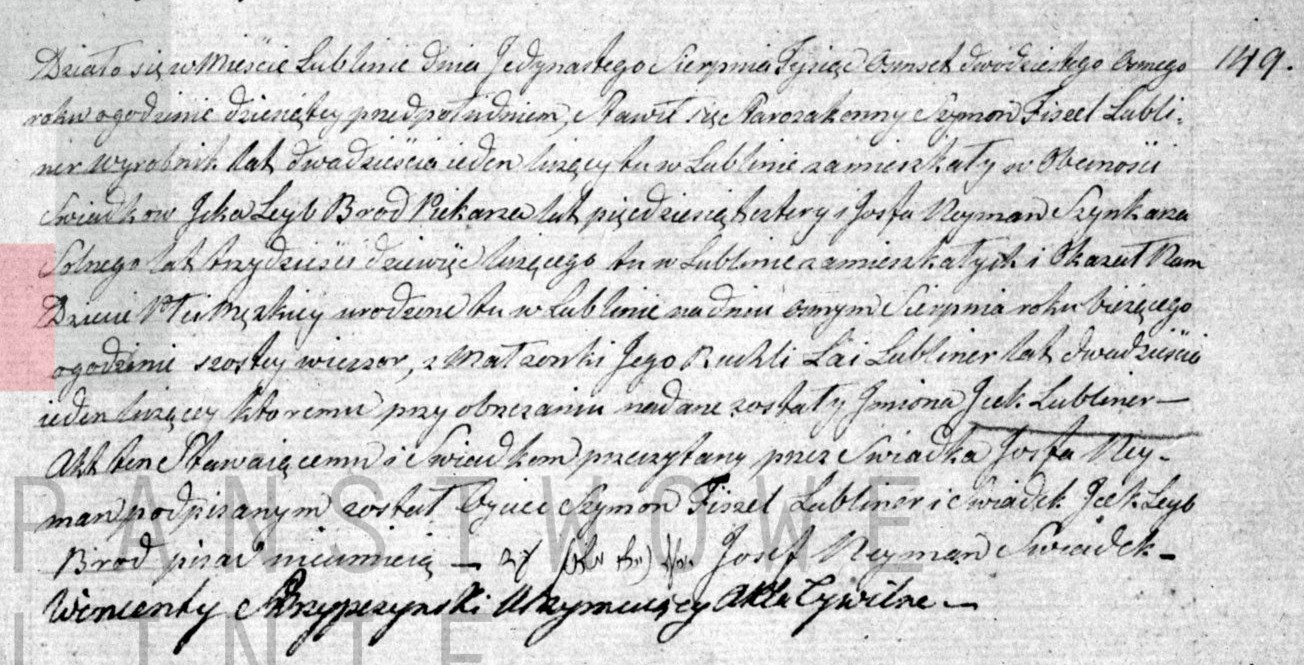 Działo się w Mieście Lublinie dnia Jedynastego Sierpnia Tysiąc Osmset dwódziestego Osmego 149.
roku o godzinie dziesiątey przed południem, Stawił się Starozakonny Szymon Fiszel Lubli-
ner Wyrobnik lat dwadzieścia ieden liczący tu w Lublinie zamieszkały w Obecności
Swiadkow Jcka Leyb Brod Piekarza lat pięćdziesiąt cztery i Josfa Neyman Szynkarza
Solnego lat trzydzieści dziewięć liczącego tu w Lublinie zamieszkałych i Okazał Nam
Dziecie Płci Męzkiey urodzone tu w Lublinie na dniu osmym Sierpnia roku bieżącego
o godzinie szostey wieczor, z Małzonki Jego Ruchli Łai Lubliner lat dwadzieścia
ieden liczącey ktoremu przy obrzezaniu nadane zostały Jmiona Jcek Lubliner —
Akt ten Stawaiącemu i Swiadkom przeczytany przez Swiadka Josfa Ney-
man podpisanym został Oyciec Szymon Fiszel Lubliner i Swiadek Jcek Leyb
Brod pisać nieumieią — Josef Neyman Swiadek —
Wincenty Skrzypczynski Utrzymuiący Akta Cywilne —
PANSTWOWE